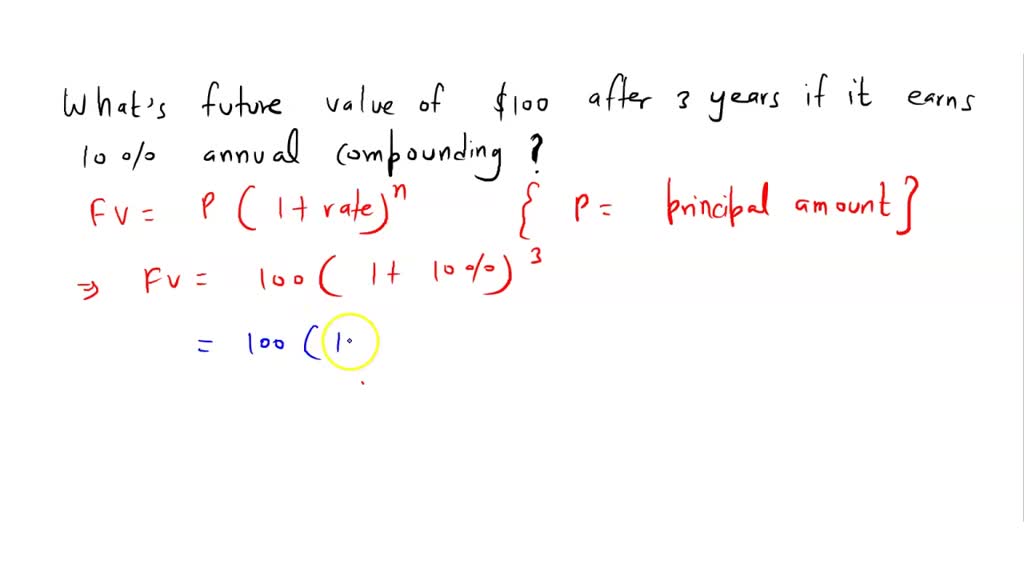 What's future value of $100 after 3 years if it earns
10% annual compounding ?
FV = P ( 1 + rate)^n { P = principal amount }
⇒ FV = 100 ( 1 + 10%)^3
= 100 ( 1.